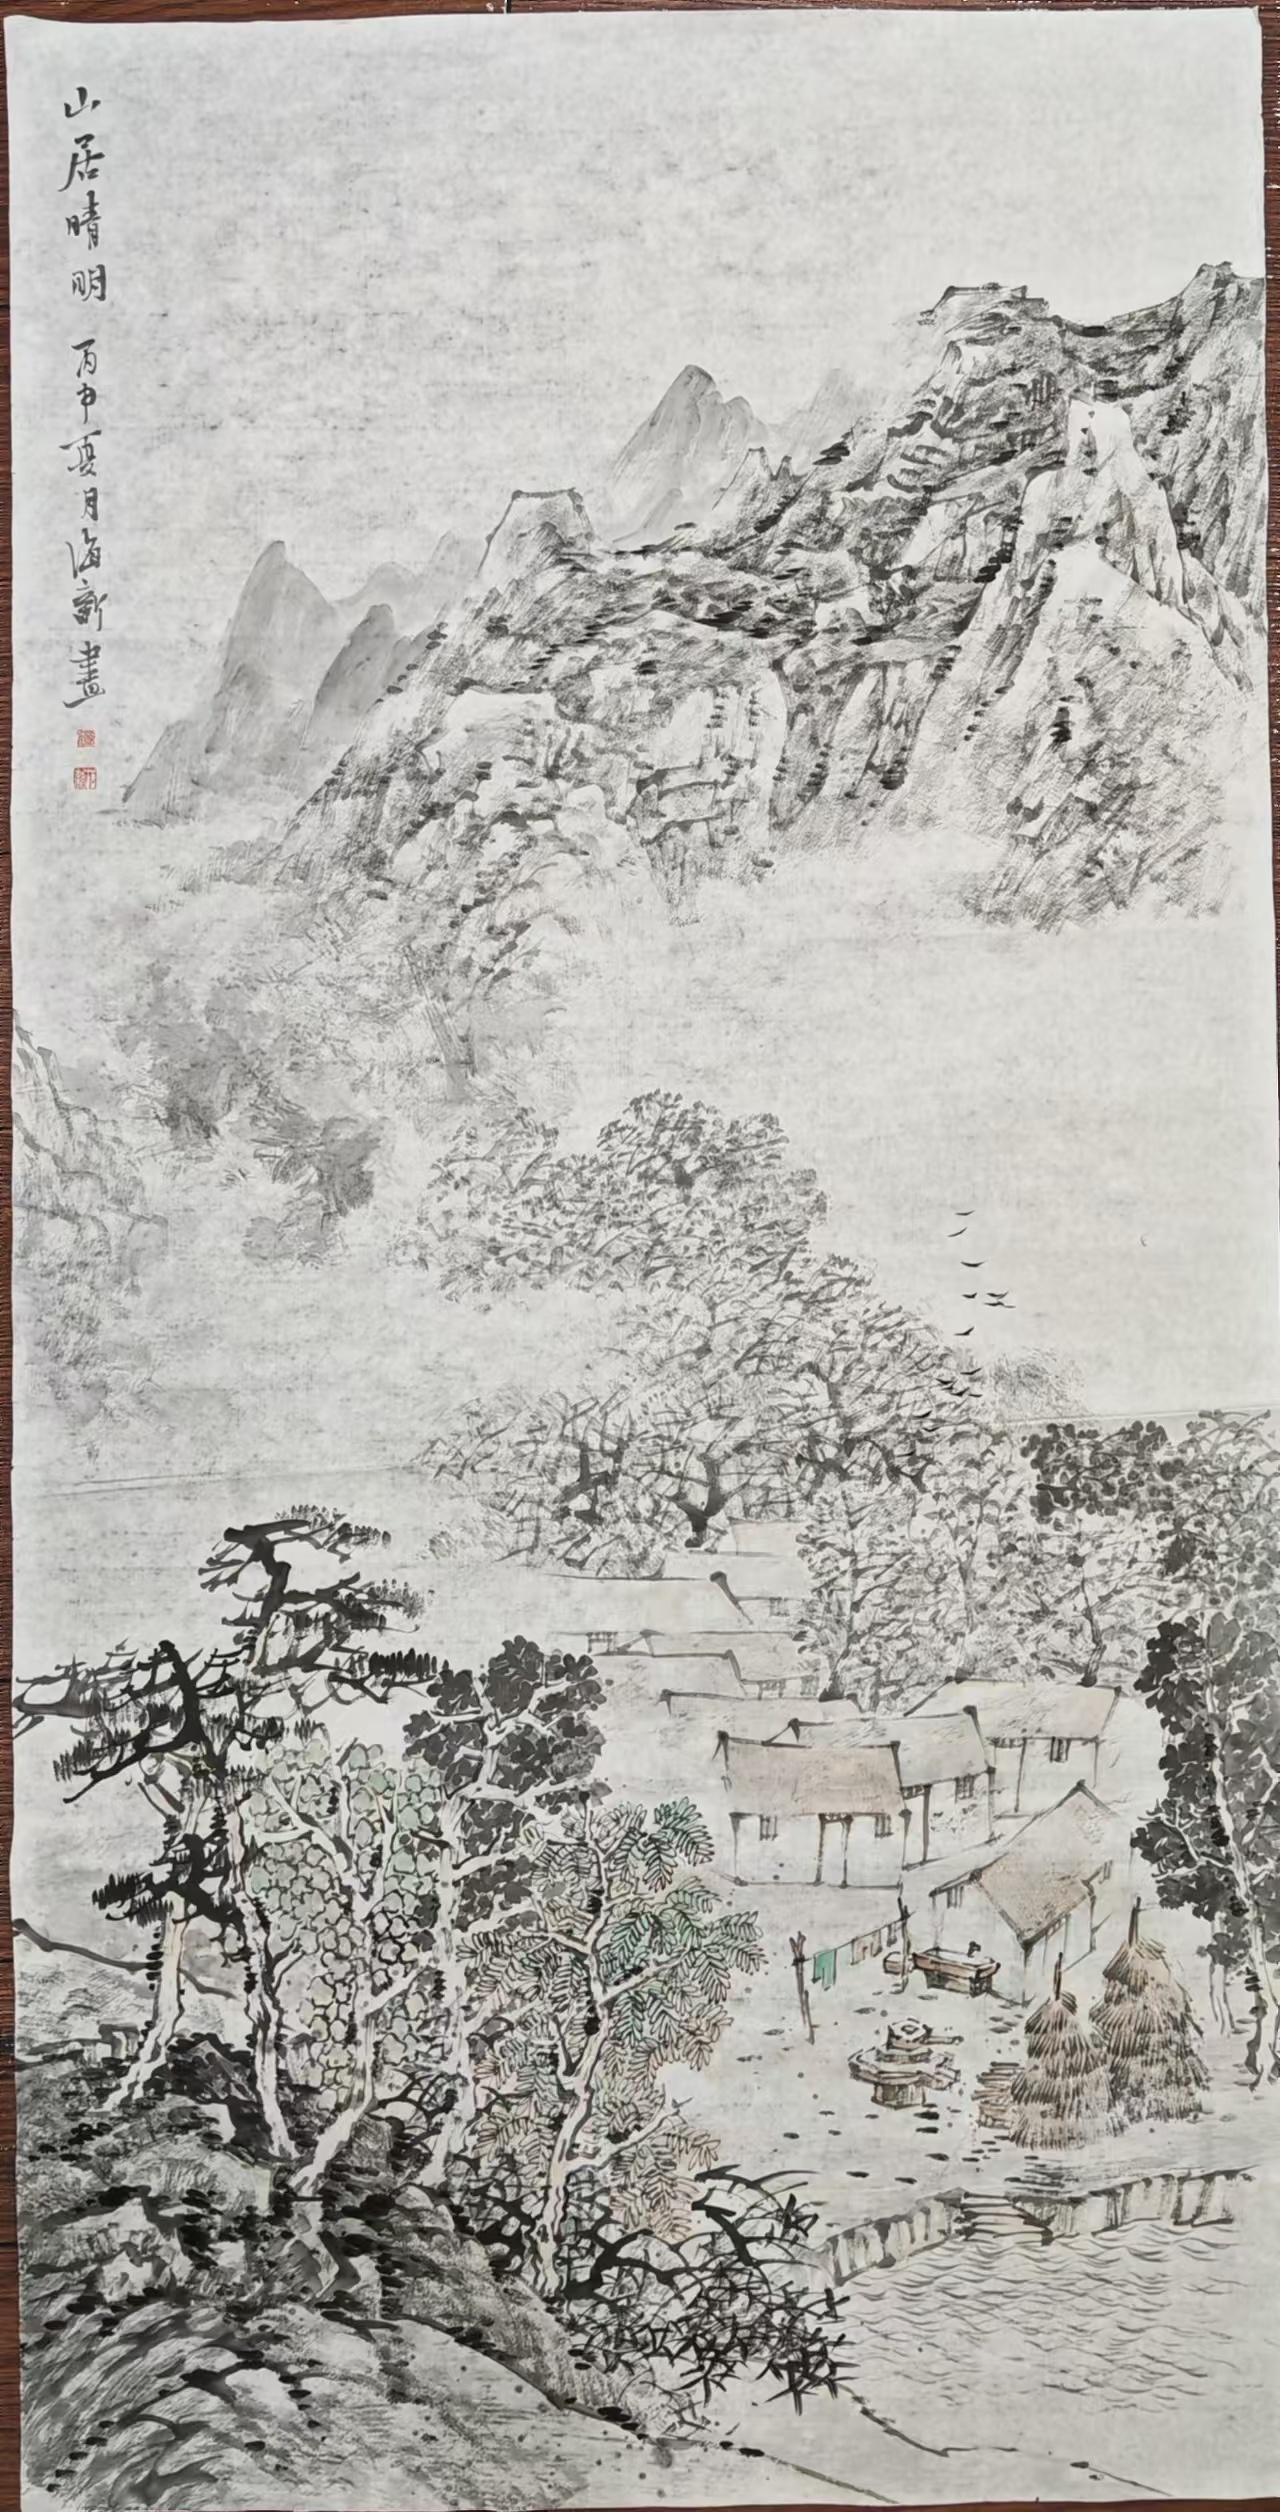 山居晴明 丙申夏月海新畫